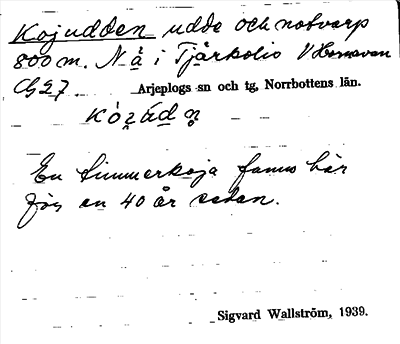 Kojudden udde och notvarp
800 m. N å i Tjärkolio V Hornavan
Arjeplogs sn och tg, Norrbottens län.
En timmerkoja fanns här
för en 40 år sedan.
Sigvard Wallström, 1939.